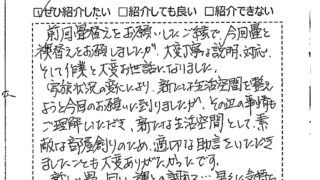 ☑ぜひ紹介したい □紹介しても良い □紹介できない
前回畳替えをお願いしたご縁で、今回畳と
襖替えをお願いしましたが、大変丁寧な説明、対応、
そして作業と大変お世話になりました。
家族状況の変化により、新たな生活空間を整え
ようと今回のお願いに到りましたが、その辺の事情も
ご理解いただき、新たな生活空間として、素
敵な部屋創りのため、適切な助言をいただき
ましたことも大変ありがたかったです。
新しい畳、白い襖との調和で